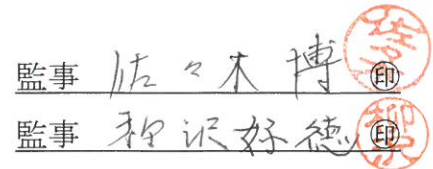 監事 佐々木 博 ㊞
監事 柳沢好徳 ㊞